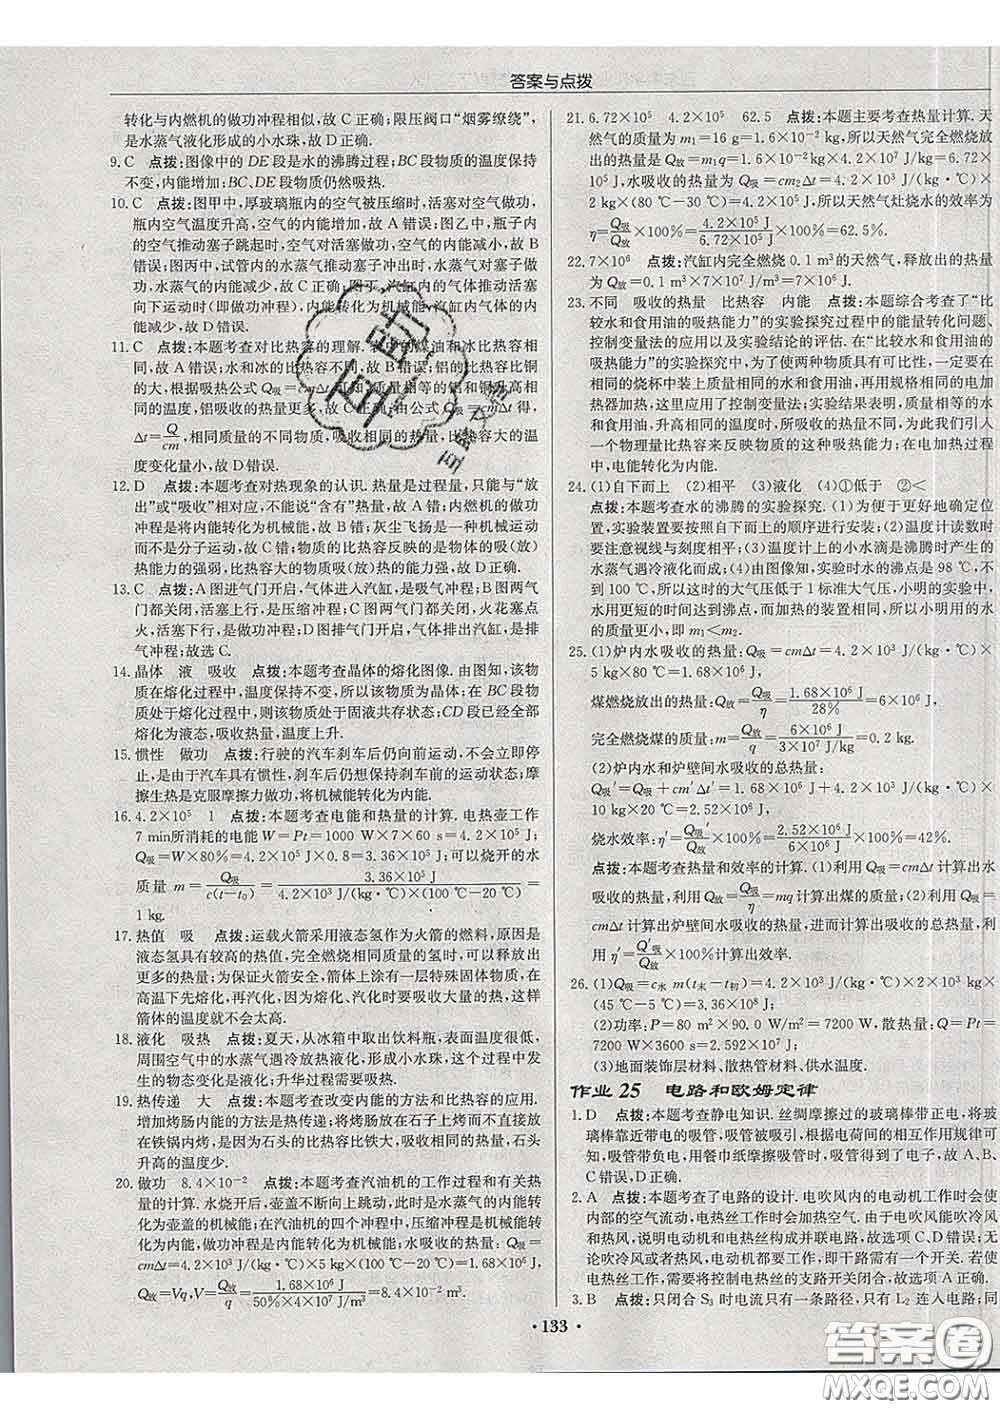 答案与点拨
转化与内燃机的做功冲程相似,故 C 正确;限压阀口“烟雾缭绕”,
是水蒸气液化形成的小水珠,故 D 正确.
9. C 点拨:图像中的 DE 段是水的沸腾过程;BC 段物质的温度保持
不变,内能增加;BC、DE 段物质仍然吸热.
10. C 点拨:图甲中,厚玻璃瓶内的空气被压缩时,活塞对空气做功,
瓶内空气温度升高,空气的内能增加,故 A 错误;图乙中,瓶子内
的空气推动塞子跳起时,空气对活塞做功,空气的内能减小,故 B
错误;图丙中,试管内的水蒸气推动塞子冲出时,水蒸气对塞子做
功,水蒸气的内能减少,故 C 正确;图丁,汽缸内的气体推动活塞
向下运动时(即做功冲程),内能转化为机械能,汽缸内气体的内
能减少,故 D 错误.
11. C 点拨:本题考查对比热容的理解.表中的煤油和冰比热容相
同,故 A 错误;水和冰的比热容不同,故 B 错误;铝的比热容比铜
的大,根据吸热公式 Q吸=cmΔt 可知,质量相等的铝和铜升高相
同的温度,铝吸收的热量更多,故 C 正确;由公式 Q吸=cmΔt 得,
Δt=Q/cm,相同质量的不同物质,吸收相同的热量,比热容大的温
度变化量小,故 D 错误.
12. D 点拨:本题考查对热现象的认识.热量是过程量,只能与“放
出”或“吸收”相对应,不能说“含有”热量,故 A 错;内燃机的做功
冲程是将内能转化为机械能,故 B 错;灰尘飞扬是一种机械运动
而不是分子运动,故 C 错;物质的比热容反映的是物体的吸(放)
热能力的强弱,比热容大的物质吸(放)热的能力强,故 D 正确.
13. C 点拨:A 图进气门开启,气体进入汽缸,是吸气冲程;B 图两气
门都关闭,活塞上行,是压缩冲程;C 图两气门都关闭,火花塞点
火,活塞下行,是做功冲程;D 图排气门开启,气体排出汽缸,是排
气冲程;故选 C.
14. 晶体 液 吸收 点拨:本题考查晶体的熔化图像.由图知,该物
质在熔化过程中,温度保持不变,所以该物质为晶体;在 BC 段物
质处于熔化过程中,则该物质为固液共存状态;CD 段已经全部
熔化为液态,吸收热量,温度上升.
15. 惯性 做功 点拨:行驶的汽车刹车后仍向前运动,不会立即停
止,是由于汽车具有惯性,刹车后仍想保持刹车前的运动状态;摩
擦生热是克服摩擦力做功,将机械能转化为内能.
16. 4.2×10⁵ 1 点拨:本题考查电能和热量的计算.电热壶工作
7 min所消耗的电能 W=Pt=1000 W×7×60 s=4.2×10⁵ J;
Q吸=W×80%=4.2×10⁵ J×0.8=3.36×10⁵ J;可以烧开的水
质量 m=Q吸/c(t-t₀)=3.36×10⁵ J/4.2×10³ J/(kg·℃)×(100 ℃-20 ℃)=
1 kg.
17. 热值 吸 点拨:运载火箭采用液态氢作为火箭的燃料,原因是
液态氢具有较高的热值,完全燃烧相同质量的氢时,可以释放出
更多的热量;为保证火箭安全,箭体上涂有一层特殊固体物质,在
高温下先熔化,再汽化,因为熔化、汽化时要吸收大量的热,这样
箭体的温度就不会太高.
18. 液化 吸热 点拨:夏天,从冰箱中取出饮料瓶,表面温度很低,
周围空气中的水蒸气遇冷放热液化,形成小水珠,这个过程中发
生的物态变化是液化;升华过程需要吸热.
19. 热传递 大 点拨:本题考查改变内能的方法和比热容的应用.
增加烤肠内能的方法是热传递;将烤肠放在石子上烤而不是直接放
在铁锅内烤,是因为石头的比热容比铁大,吸收相同的热量,石头
升高的温度少.
20. 做功 8.4×10⁻² 点拨:本题考查汽油机的工作过程和有关热
量的计算.水烧开后,壶盖不断向上跳动,此时是水蒸气的内能转
化为壶盖的机械能;在汽油机的四个冲程中,压缩冲程是机械能转
化为内能,做功冲程是内能转化为机械能;水吸收的热量:Q吸=
cmΔt=4.2×10³ J/(kg·℃)×5 kg×80 ℃=1.68×10⁶ J;由
Q放=Vq,V=Q放/q=1.68×10⁶ J/50%×4×10⁷ J/m³=8.4×10⁻² m³.
21. 6.72×10⁵ 4.2×10⁵ 62.5 点拨:本题主要考查热量计算.天
然气的质量为 m₁=16 g=1.6×10⁻² kg,所以天然气完全燃烧放
出的热量为 Q放=m₁q=1.6×10⁻² kg×4.2×10⁷ J/kg=6.72×
10⁵ J,水吸收的热量为 Q吸=cm₂Δt=4.2×10³ J/(kg·℃)×
2 kg×(80 ℃-30 ℃)=4.2×10⁵ J,所以天然气灶烧水的效率为
η=Q吸/Q放×100%=4.2×10⁵ J/6.72×10⁵ J×100%=62.5%.
22. 7×10⁶ 点拨:汽缸内完全燃烧 0.1 m³的天然气,释放的热量为
Q放=Vq=0.1 m³×7.0×10⁷ J/m³=7×10⁶ J.
23. 不同 吸收的热量 比热容 内能 点拨:本题综合考查了“比
较水和食用油的吸热能力”的实验探究过程中的能量转化问题、
控制变量法的应用以及实验结论的评估.在“比较水和食用油的
吸热能力”的实验探究中,为了使两种物质具有可比性,一定要在
相同的烧杯中装上质量相同的水和食用油,再用规格相同的电加
热器加热,这里应用了控制变量法;实验结果表明,质量相等的水
和食用油,升高相同的温度时,所吸收的热量不同,为此我们引入
一个物理量比热容来反映物质的这种吸热能力;在电加热过程
中,电能转化为内能.
24. (1)自下而上 (2)相平 (3)液化 (4)①低于 ②<
点拨:本题考查水的沸腾的实验探究.(1)为了更好地确定位
置,实验装置要按照自下而上的顺序进行安装;(2)温度计读数时
要注意视线与刻度相平;(3)温度计上的小水滴是沸腾时产生的
水蒸气遇冷液化而成;(4)由图像知,实验时水的沸点是 98 ℃,不
到 100 ℃,所以这时的大气压低于 1 标准大气压,小明的实验中
水用更短的时间达到沸点,而加热的装置相同,所以小明用的水
的质量更小,即 m₁<m₂.
25. (1)炉内水吸收的热量:Q吸=cmΔt=4.2×10³ J/(kg·℃)×
5 kg×80 ℃=1.68×10⁶ J,
煤燃烧放出的热量:Q放=Q吸/η=1.68×10⁶ J/28%=6×10⁶ J,
完全燃烧煤的质量:m=Q放/q=6×10⁶ J/3×10⁷ J/kg=0.2 kg.
(2)炉内水和炉壁间水吸收的总热量:
Q吸′=Q吸+cm′Δt′=1.68×10⁶ J+4.2×10³ J/(kg·℃)×
10 kg×20 ℃=2.52×10⁶ J,
烧水效率:η′=Q吸′/Q放×100%=2.52×10⁶ J/6×10⁶ J×100%=42%.
点拨:本题考查热量和效率的计算.(1)利用 Q吸=cmΔt 计算出水
吸收的热量,利用 Q放=Q吸/η=mq 计算出煤的质量;(2)利用 Q吸=
cmΔt 计算出炉壁间水吸收的热量,进而计算出吸收的总热量,利
用 η′=Q′吸/Q放×100%计算出效率.
26. (1)Q吸=c水 m(t末-t初)=4.2×10³ J/(kg·℃)×2 kg×
(45 ℃-5 ℃)=3.36×10⁵ J;
(2)功率:P=80 m²×90.0 W/m²=7200 W,散热量:Q=Pt=
7200 W×3600 s=2.592×10⁷ J;
(3)地面装饰层材料、散热管材料、供水温度.
作业 25 电路和欧姆定律
1. D 点拨:本题考查静电知识.丝绸摩擦过的玻璃棒带正电,将玻
璃棒靠近带电的吸管,吸管被吸引,根据电荷间的相互作用规律可
知,吸管带负电,用餐巾纸摩擦吸管时,吸管得到了电子,故 A、B、
C 错误,D 正确.
2. A 点拨:本题考查了电路的设计.电吹风内的电动机工作时会使
内部的空气流动,电热丝工作时会加热空气.由于电吹风能吹冷风
和热风,说明电动机与电热丝构成并联电路,故选项 C、D 错误;无
论吹冷风或者热风,电动机都要工作,即干路需有一个开关.若使
电热丝工作,需要将控制电热丝的支路开关闭合,故选项 A 正确.
3. B 点拨:只闭合 S₃ 时电流只有一条路径,只有 L₂ 连入电路;同
· 133 ·
答案圈
MXQE.COM